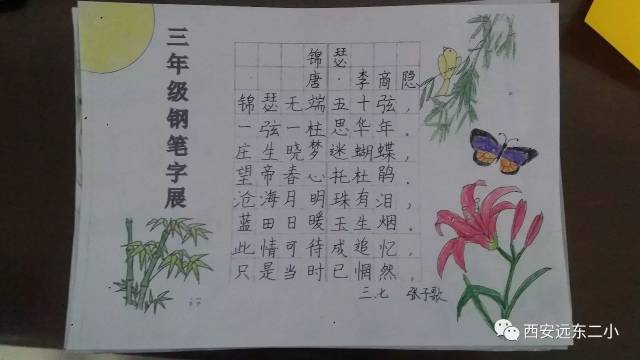 三年级钢笔字展
锦瑟
唐·李商隐
锦瑟无端五十弦，
一弦一柱思华年。
庄生晓梦迷蝴蝶，
望帝春心托杜鹃。
沧海月明珠有泪，
蓝田日暖玉生烟。
此情可待成追忆，
只是当时已惘然。
三.七 张子歌
西安远东二小